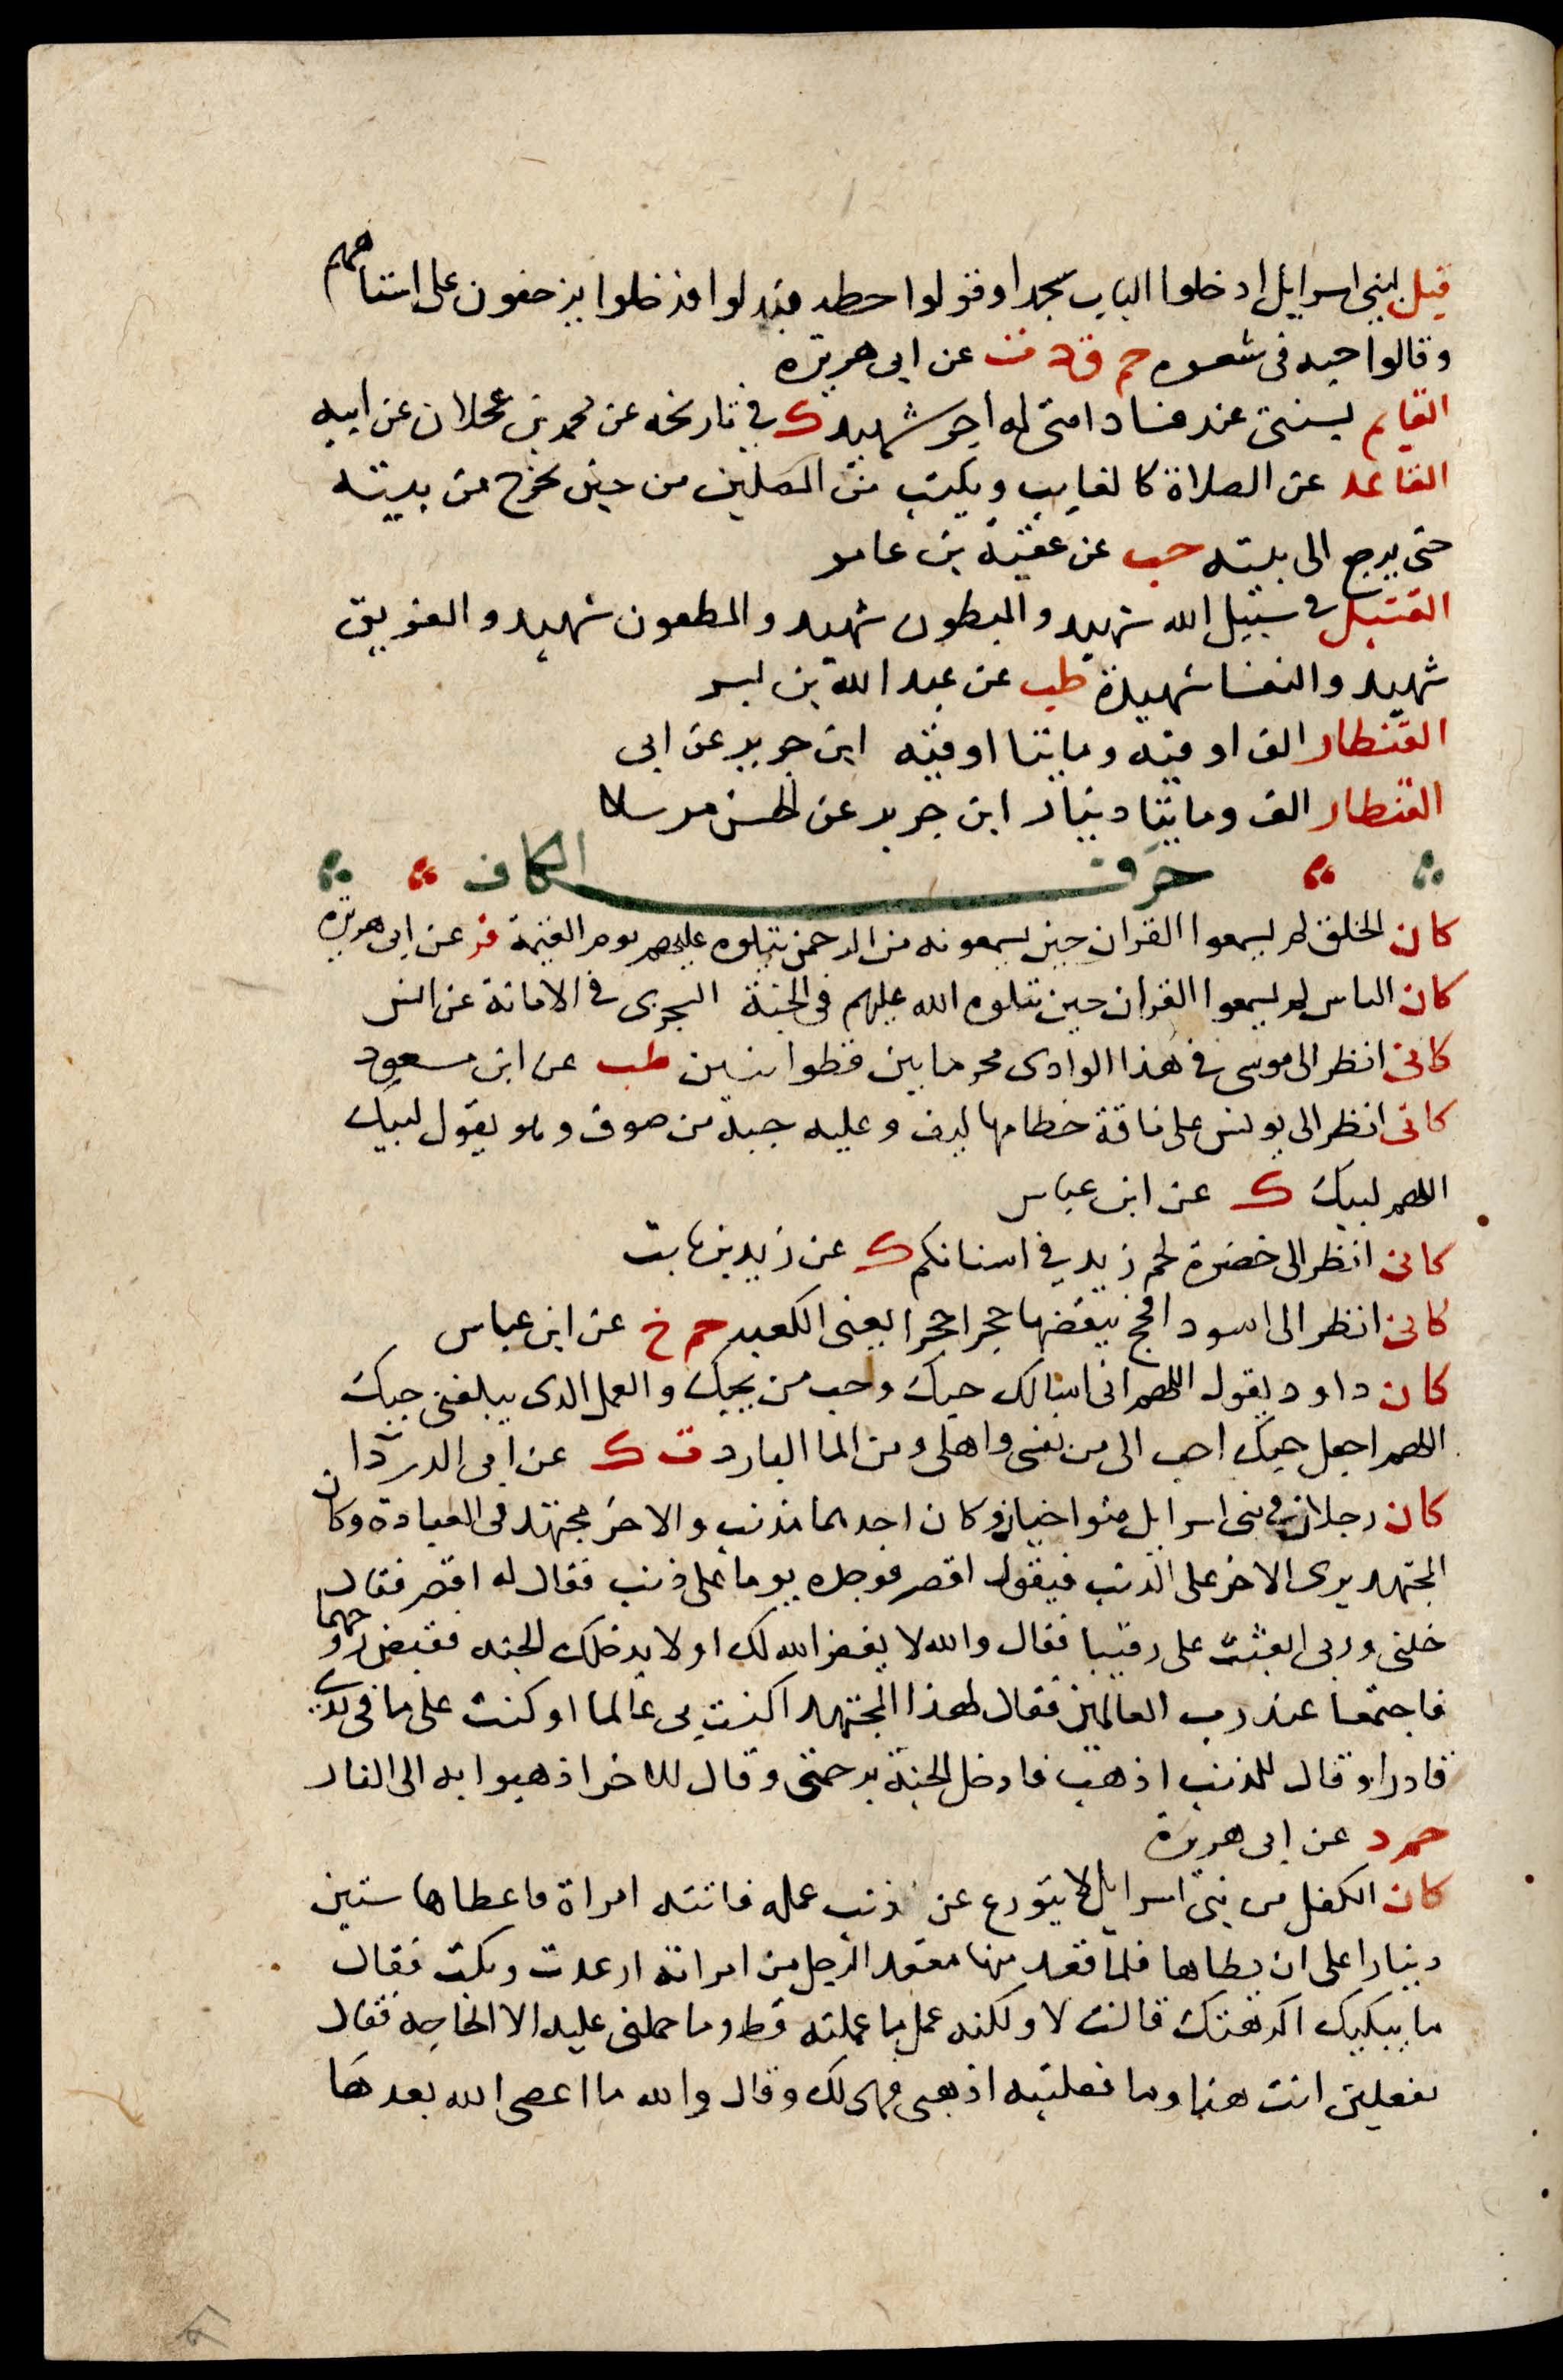 قيل لبنى اسرايل ادخلوا الباب سجدا وقولوا حطه فبدلوا فدخلوا يزحفون على استاههم
وقالوا حبه فى شعره حم ق د ت عن ابى هريرة
القايم بسنتى عند فساد امتى له اجر شهيد ك فى تاريخه عن محمد بن عجلان عن ابيه
القاعد عن الصلاة كالغايب ويكتب من المصلين من حين يخرج من بيته
حتى يرجع الى بيته حب عن عقبة بن عامر
القتيل فى سبيل الله شهيد والمبطون شهيد والمطعون شهيد والغريق
شهيد والنفسا شهيدة طب عن عبد الله بن بسر
القنطار الف اوقيه ومايتا اوقيه ابن جرير عن ابى
القنطار الف ومايتا دينار ابن جرير عن الحسن مرسلا
حرف الكاف
كان الخلق لم يسمعوا القران حين يسمعونه من الرحمن يتلوه عليهم يوم القيمة فر عن ابى هريرة
كان الناس لم يسمعوا القران حين يتلوه الله عليهم فى الجنة السجزى فى الابانة عن انس
كانى انظر الى موسى فى هذا الوادى محرما بين قطوانيين طب عن ابن مسعود
كانى انظر الى يونس على ناقة خطامها ليف وعليه جبة من صوف وهو يقول لبيك
اللهم لبيك ك عن ابن عباس
كانى انظر الى خضرة لحم زيد فى اسنانكم ك عن زيد بن ثابت
كانى انظر الى اسود افحج ينقضها حجرا حجرا يعنى الكعبه حم خ عن ابن عباس
كان داود يقول اللهم انى اسالك حبك وحب من يحبك والعمل الذى يبلغنى حبك
اللهم اجعل حبك احب الى من نفسى واهلى ومن الما البارد ت ك عن ابى الدردا
كان رجلان فى بنى اسرايل متواخيان وكان احدهما مذنب والاخر مجتهد فى العبادة وكان
المجتهد يرى الاخر على الذنب فيقول اقصر فوجده يوما على ذنب فقال له اقصر فقال
خلنى وربى ابعثت على رقيبا فقال والله لا يغفر الله لك او لا يدخلك الجنه فقبض روحهما
فاجتمعا عند رب العالمين فقال لهذا المجتهد اكنت بى عالما او كنت على ما فى يدى
قادرا وقال للمذنب اذهب فادخل الجنة برحمتى وقال للاخر اذهبوا به الى النار
حم د عن ابى هريرة
كان الكفل من بنى اسرايل لا يتورع عن ذنب عمله فاتته امراة فاعطاها ستين
دينارا على ان يطاها فلما قعد منها مقعد الرجل من امراته ارعدت وبكت فقال
ما يبكيك اكرهتك قالت لا ولكنه عمل ما عملته قط وما حملنى عليه الا الحاجه فقال
تفعلين انت هذا وما فعلتيه اذهبى فهى لك وقال والله ما اعصى الله بعدها